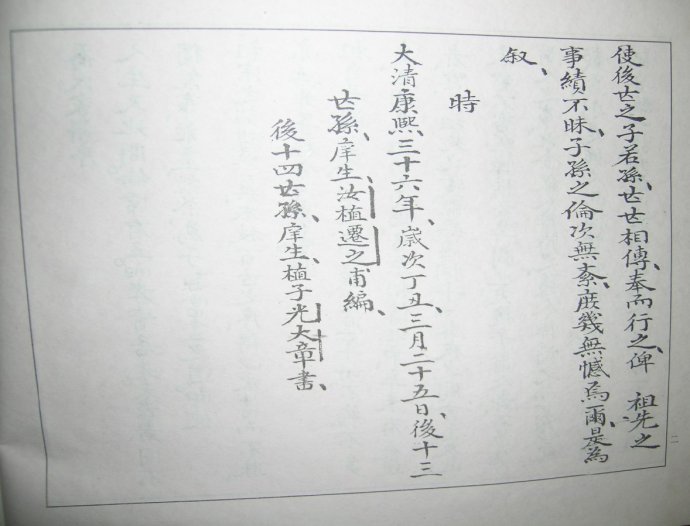 使後世之子若孫、世世相傳、奉而行之、俾 祖先之
事績不昧、子孫之倫次無紊、庶幾無憾焉爾、是為
叙、
時
大清康熙三十六年、歲次丁丑、三月二十五日、後十三
世孫、庠生、汝植遷之甫編、
後十四世孫、庠生、植子光大章書、
二